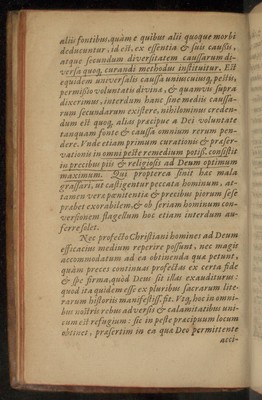 aliis fontibus, quàm e quibus alii quoque morbi
deducuntur, id est, ex essentia & suis caussis,
atque secundum diversitatem caussarum di-
versa quoq; curandi methodus instituitur. Est
equidem universalis caussa uniuscujusq; pestis,
permissio voluntatis divinæ, & quamvis supra
diximus, interdum hanc sine mediis caussa-
rum secundarum existere, nihilominus creden-
dum est quog, alias præcipue a Dei voluntate
tanquam fonte & caussa omnium rerum pen-
dere. Unde etiam primum curationis & præser-
vationis in omni peste remedium potiss. consistit
in precibus piis & religiosis ad Deum optimum
maximum. Qui propterea sinit hæc mala
grassari, ut castigentur peccata hominum, at-
tamen vera pœnitentia & precibus piorum sese
præbet exorabilem, & ob seriam hominum con-
versionem flagellum hoc etiam interdum au-
ferre solet.
Nec profecto Christiani homines ad Deum
efficacius medium reperire possunt, nec magis
accommodatum ad ea obtinenda quæ petunt,
quàm preces continuas profectas ex certa fide
& spe firma, quòd Deus sit illas exauditurus:
quod ita quidem esse ex pluribus sacrarum lite-
rarum historiis manifestiss. fit. Utq, hoc in omni-
bus nostris rebus adversis & calamitatibus uni-
cum est refugium: sic in peste præcipuum locum
obtinet, præsertim in ea quæ Deo permittente
acci-